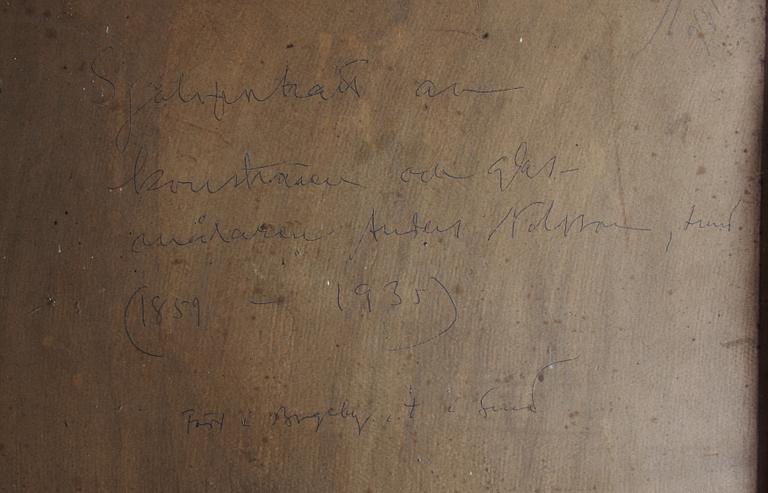 Självporträtt av
konstnären och glas-
målaren Anders Nilsson, Lund
(1859 - 1935)
Född i Borgeby, † i Lund